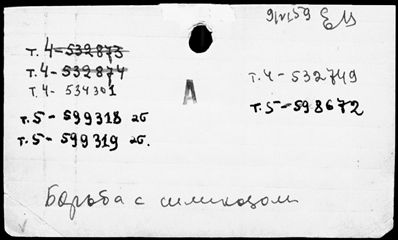 9/VI 59 ЕМ
т. 4-532873
т. 4-532874
т. 4-534301
т. 4-532749
т. 5-598672
А
т. 5-599318 аб
т. 5-599319 аб.
Борьба с силикозом